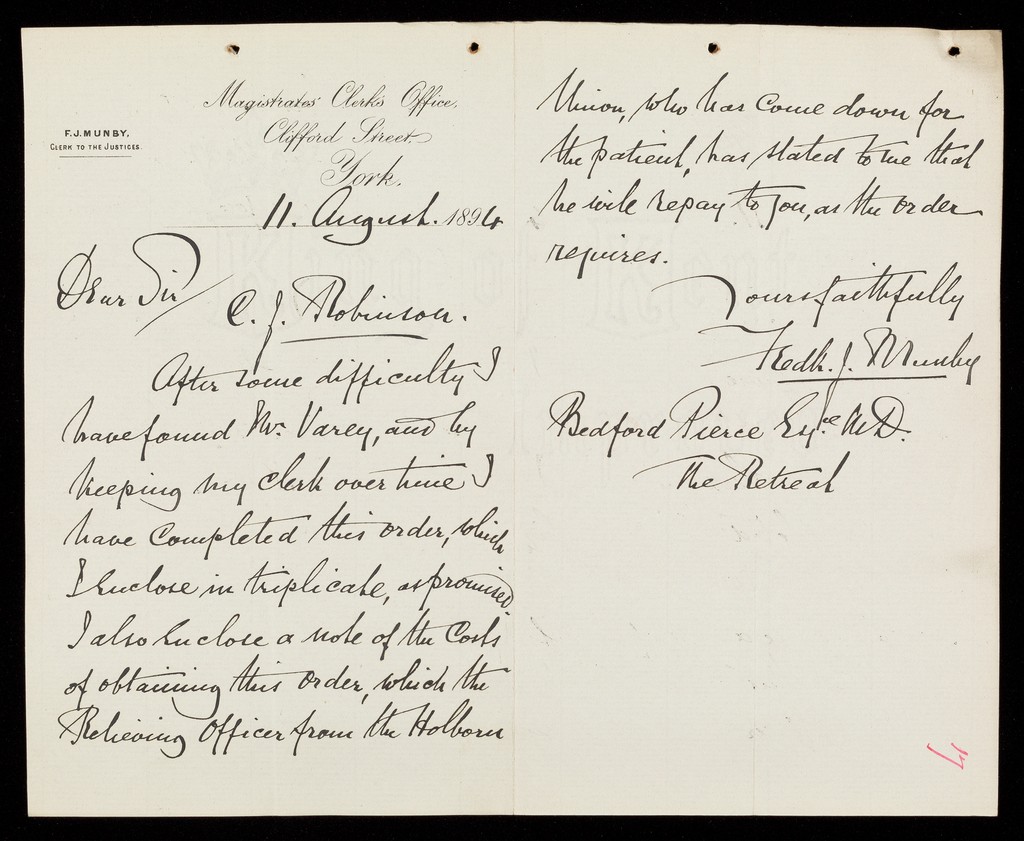 Magistrates' Clerk's Office,
Clifford Street,
York.
F. J. MUNBY,
CLERK TO THE JUSTICES.
11. August. 1894
Dear Sir
C. J. Robinson.
After some difficulty I
have found Mr. Varey, and by
keeping my clerk over time I
have completed this order, which
I enclose in triplicate, as promised.
I also enclose a note of the Costs
of obtaining this order, which the
Relieving Officer from the Holborn
Union, who has come down for
the patient, has stated to me that
he will repay to you, as the order
requires.
Yours faithfully
Fredk. J. Munby
Bedford Pierce Esqre M.D.
The Retreat